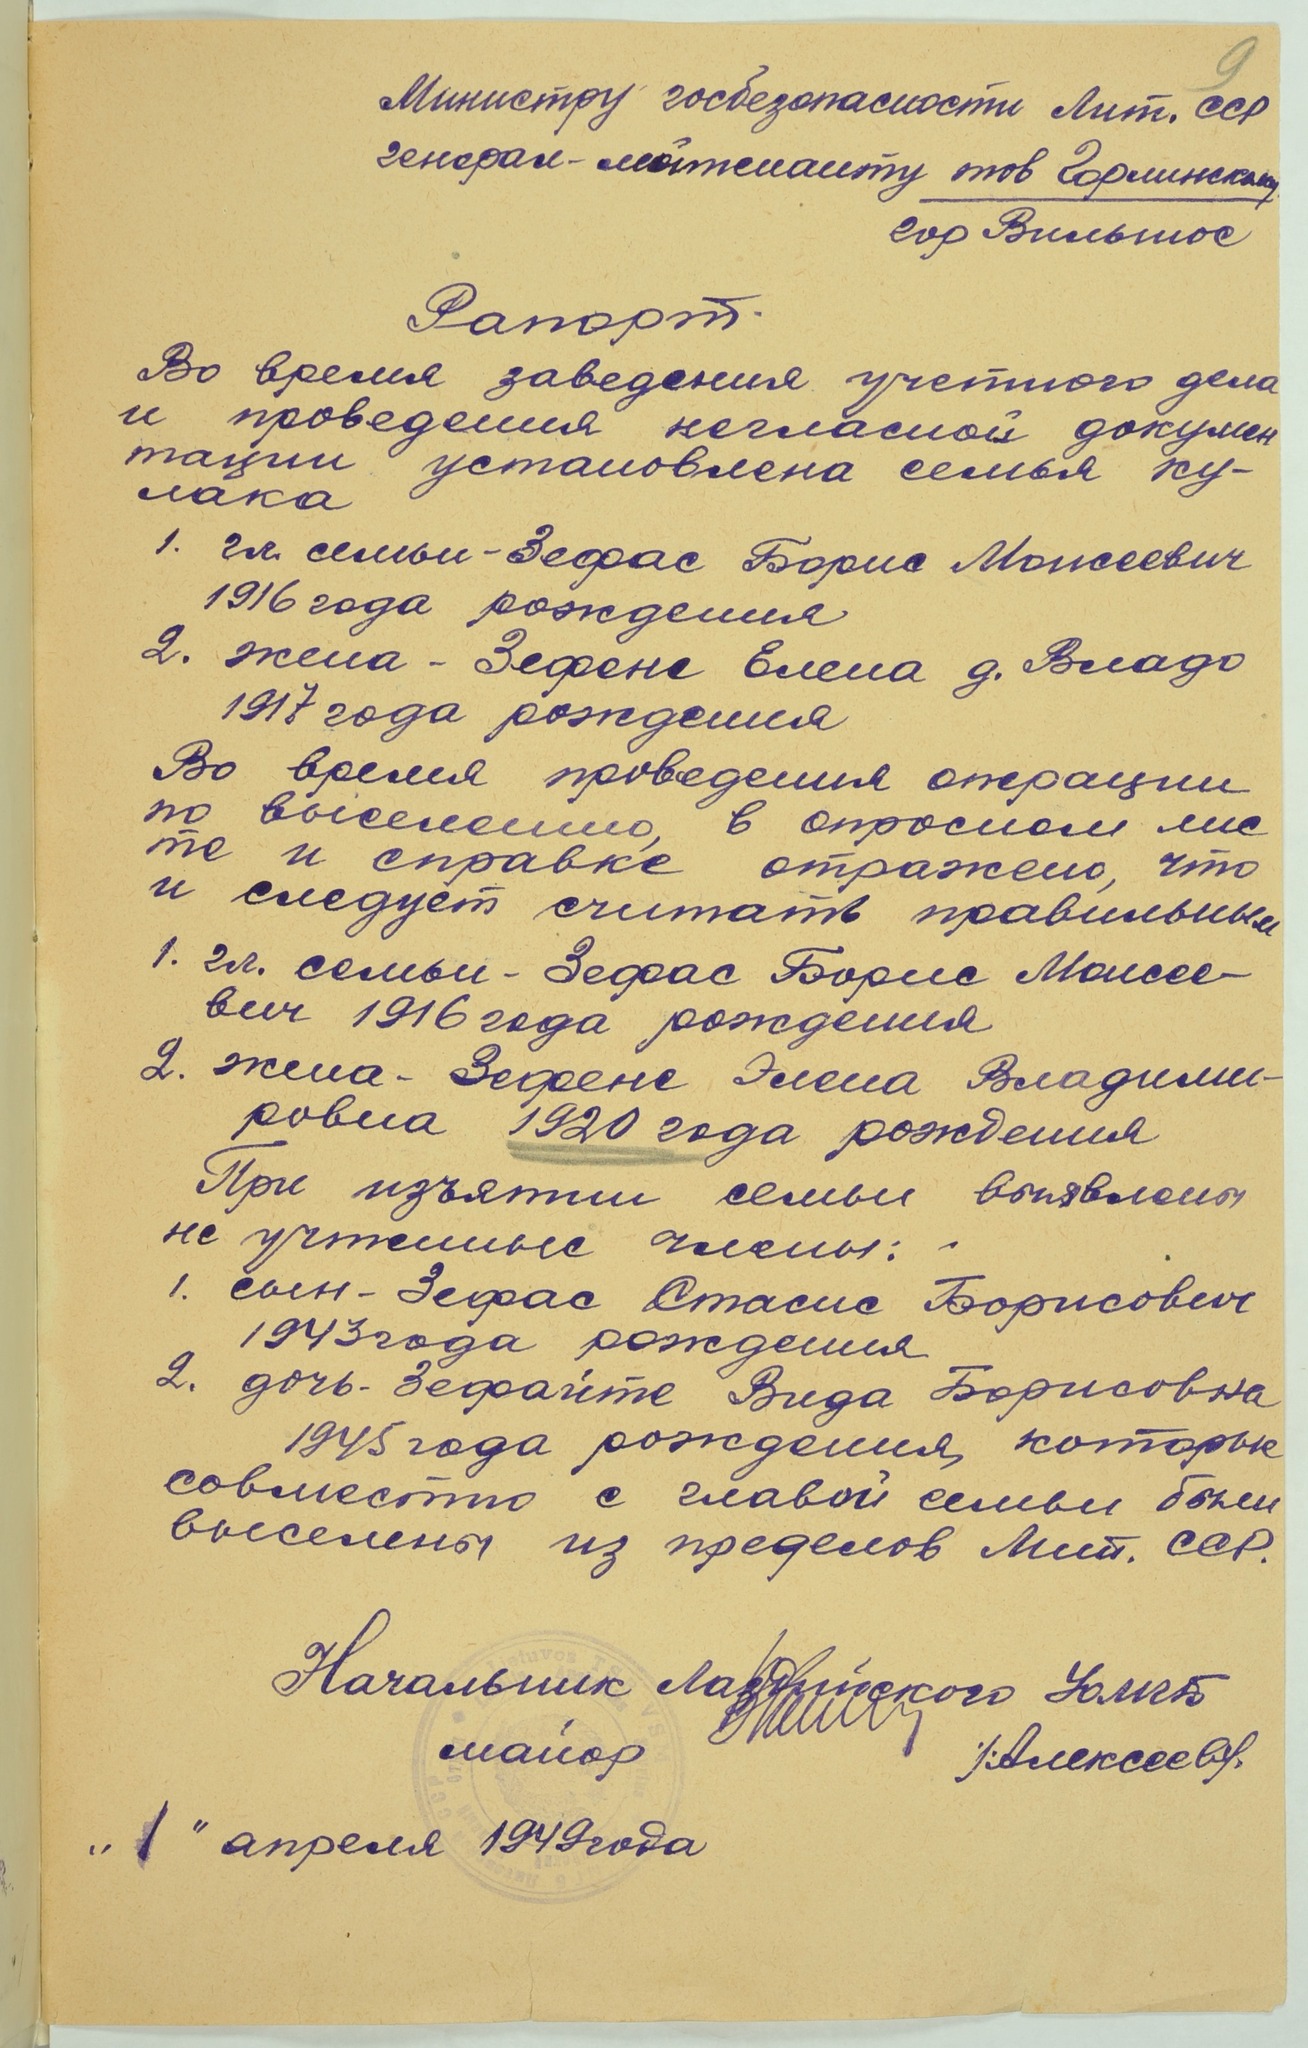 9
Министру госбезопасности Лит. ССР
генерал-лейтенанту тов Горлинскому
гор Вильнюс
Рапорт.
Во время заведения учетного дела
и проведения негласной докумен
тации установлена семья ку-
лака
1. гл. семьи - Зефас Борис Моисеевич
1916 года рождения
2. жена - Зефене Елена д. Владо
1917 года рождения
Во время проведения операции
по выселению, в опросном лис
те и справке отражено, что
и следует считать правильным
1. гл. семьи - Зефас Борис Моисее-
вич 1916 года рождения
2. жена - Зефене Элена Владими-
ровна 1920 года рождения
При изъятии семьи выявлены
не учтенные члены:
1. сын - Зефас Стасис Борисович
1943 года рождения
2. дочь - Зефайте Вида Борисовна
1945 года рождения, которые
совместно с главой семьи были
выселены из пределов Лит. ССР.
Начальник Лаздийского УОМГБ
майор /:Алексеев:/.
"1" апреля 1949 года
Lietuvos TSR